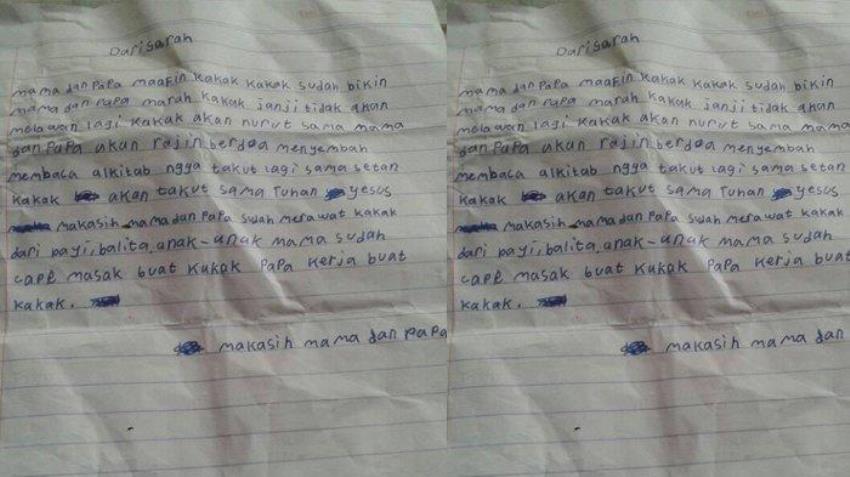 Dari sarah
mama dan papa maafin kakak kakak sudah bikin
mama dan papa marah kakak janji tidak akan
melawan lagi kakak akan nurut sama mama
dan papa akan rajin berdoa menyembah
membaca alkitab ngga takut lagi sama setan
kakak akan takut sama Tuhan yesus
makasih mama dan papa sudah merawat kakak
dari bayi, balita, anak-anak mama sudah
cape masak buat kakak papa kerja buat
kakak.
makasih mama dan papa
Dari sarah
mama dan papa maafin kakak kakak sudah bikin
mama dan papa marah kakak janji tidak akan
melawan lagi kakak akan nurut sama mama
dan papa akan rajin berdoa menyembah
membaca alkitab ngga takut lagi sama setan
kakak akan takut sama Tuhan yesus
makasih mama dan papa sudah merawat kakak
dari bayi, balita, anak-anak mama sudah
cape masak buat kakak papa kerja buat
kakak.
makasih mama dan